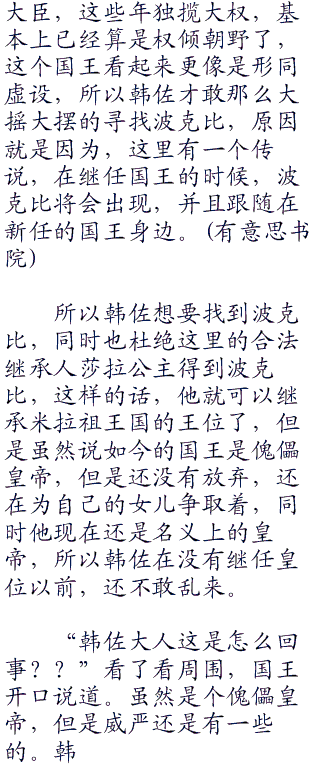 大臣，这些年独揽大权，基
本上已经算是权倾朝野了，
这个国王看起来更像是形同
虚设，所以韩佐才敢那么大
摇大摆的寻找波克比，原因
就是因为，这里有一个传
说，在继任国王的时候，波
克比将会出现，并且跟随在
新任的国王身边。(有意思书
院)
所以韩佐想要找到波克
比，同时也杜绝这里的合法
继承人莎拉公主得到波克
比，这样的话，他就可以继
承米拉祖王国的王位了，但
是虽然说如今的国王是傀儡
皇帝，但是还没有放弃，还
在为自己的女儿争取着，同
时他现在还是名义上的皇
帝，所以韩佐在没有继任皇
位以前，还不敢乱来。
“韩佐大人这是怎么回
事？？”看了看周围，国王
开口说道。虽然是个傀儡皇
帝，但是威严还是有一些
的。韩